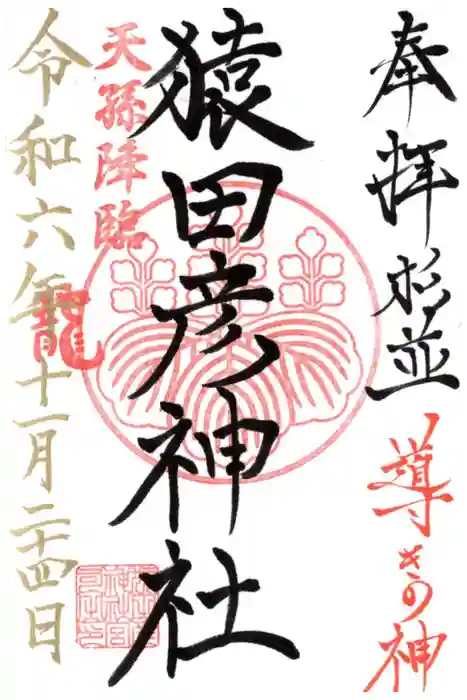 奉拝 杉並
導きの神
猿田彦神社
天孫降臨
龍
令和六年十一月二十四日